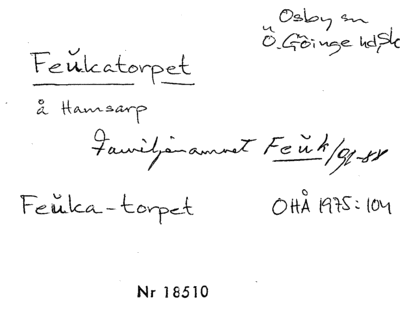 Osby sn
Ö. Göinge hd, Sk
Feŭkatorpet
å Hamsarp
Familjenamnet Feŭk
Feŭka-torpet OHÅ 1975:104
Nr 18510